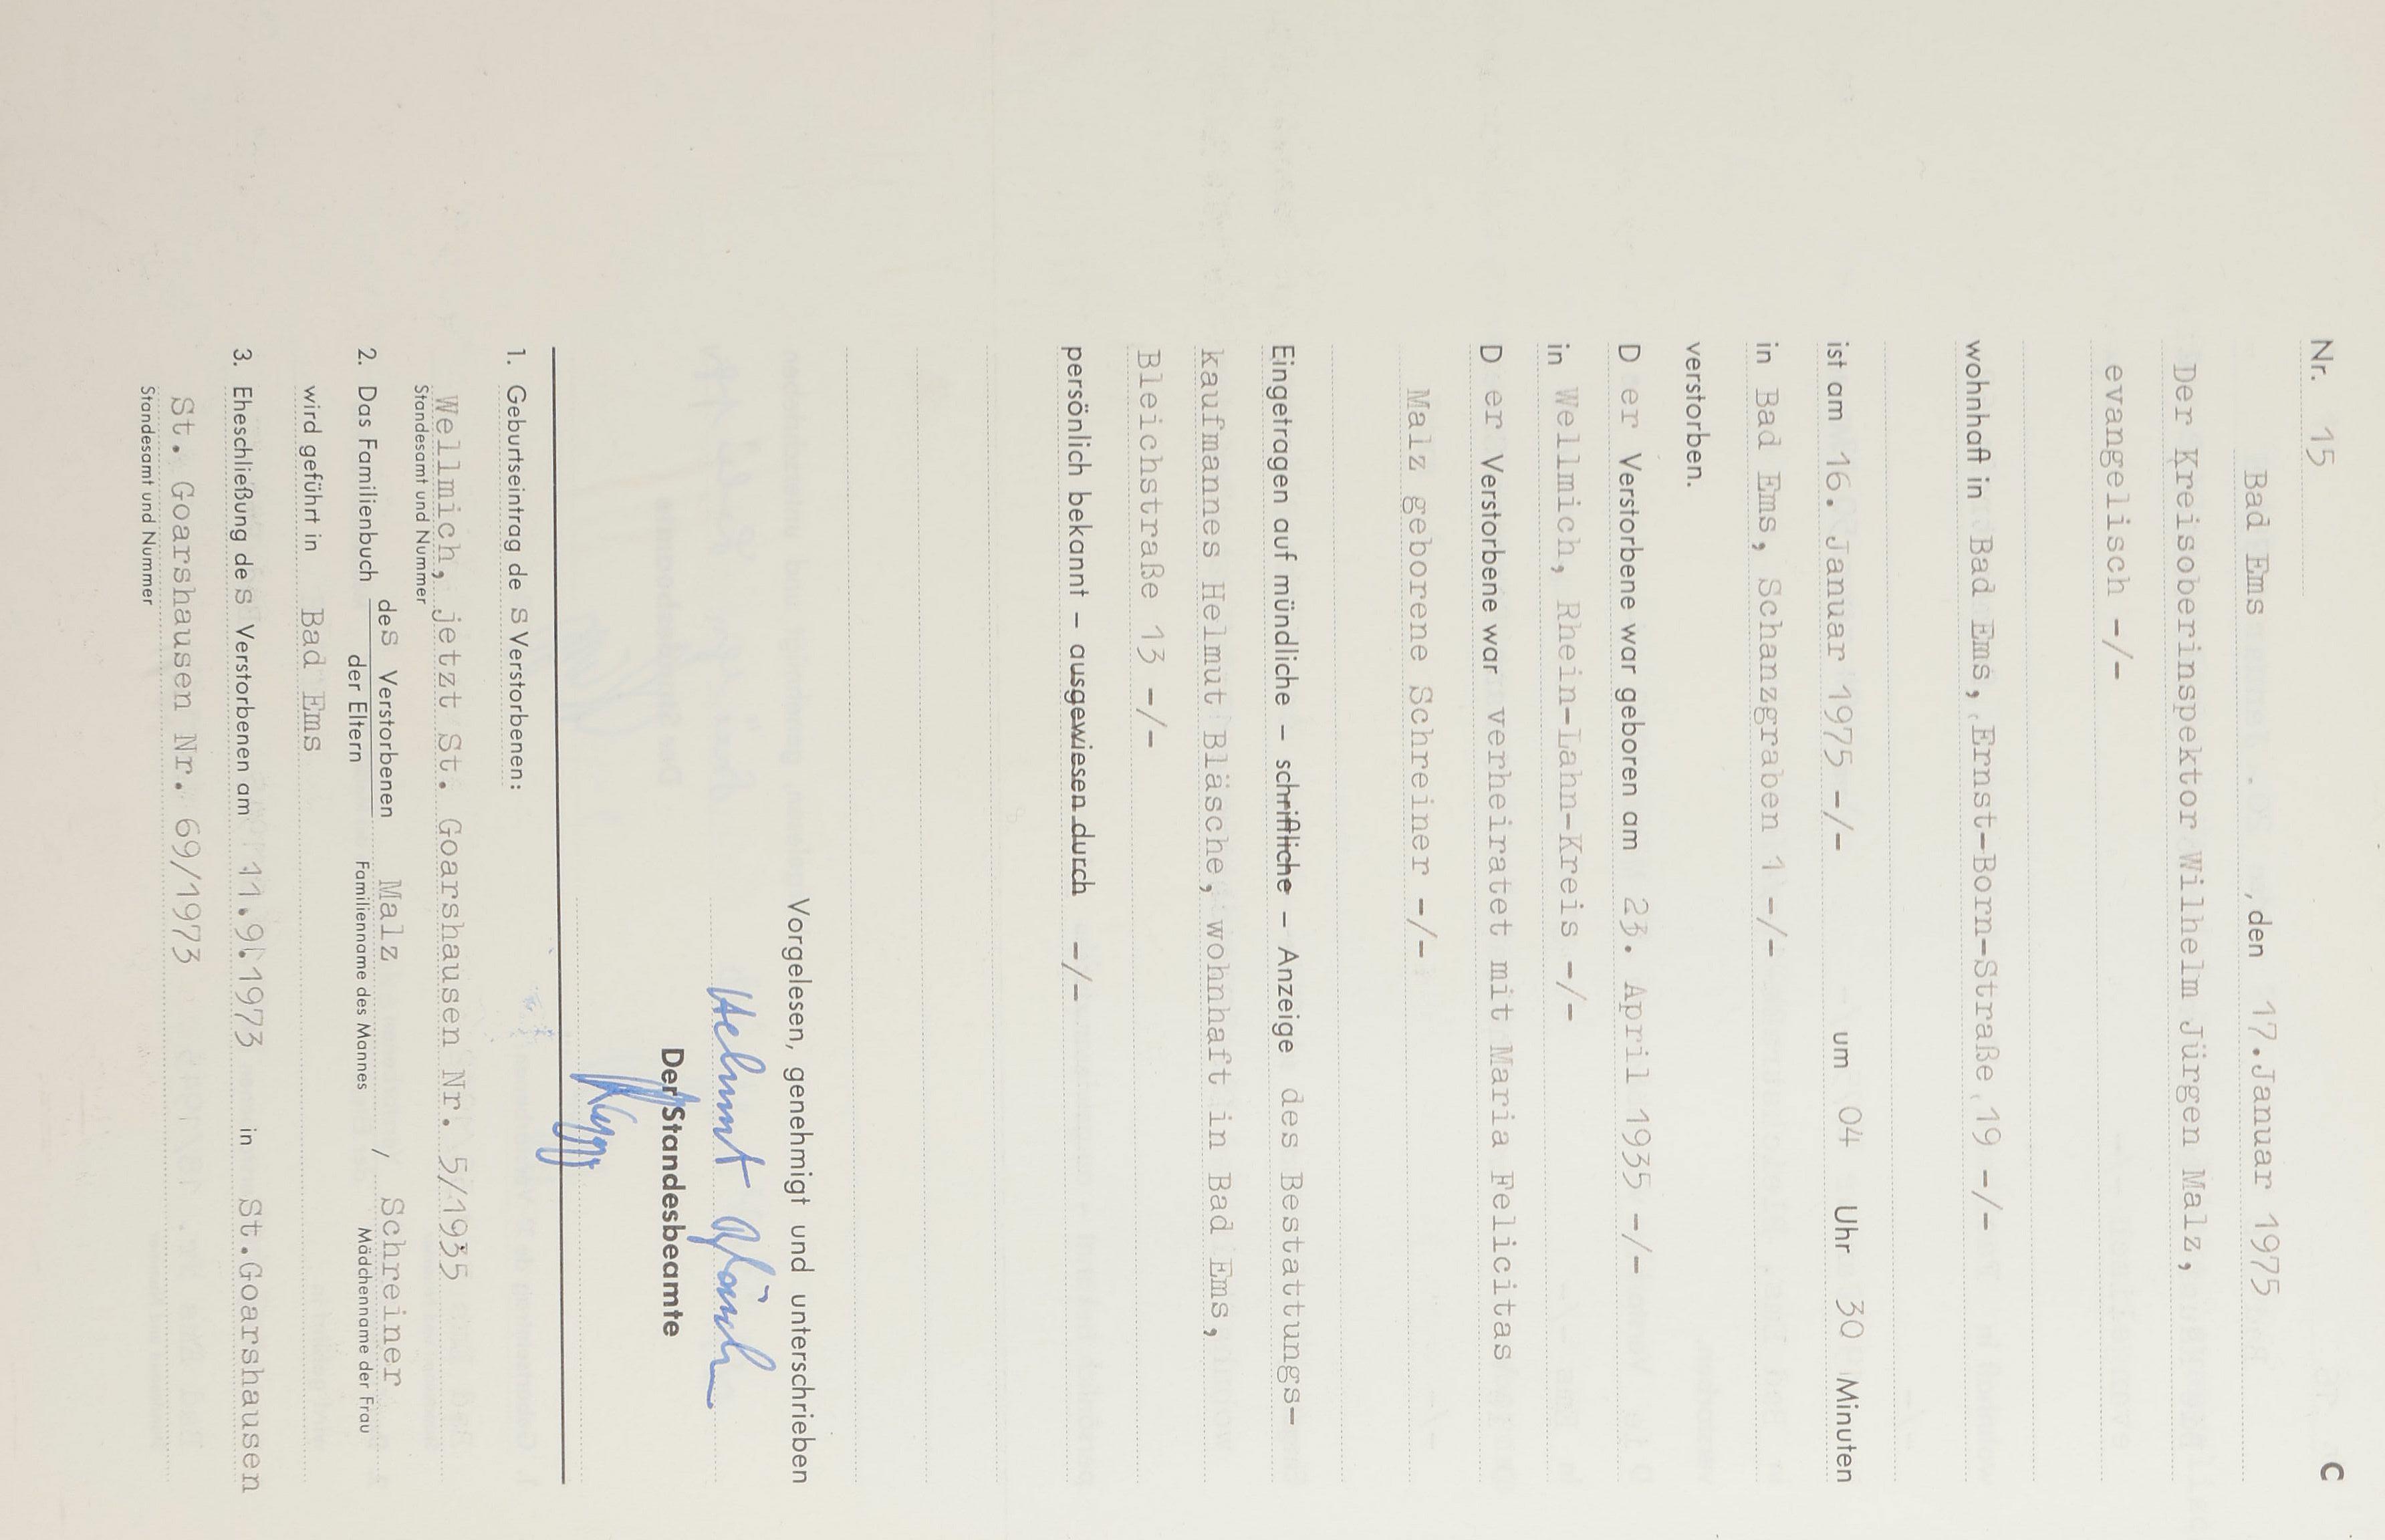 Nr. 15 C
Bad Ems , den 17.Januar 1975
Der Kreisoberinspektor Wilhelm Jürgen Malz,
evangelisch -/-
wohnhaft in Bad Ems, Ernst-Born-Straße 19 -/-
ist am 16. Januar 1975 -/- um 04 Uhr 30 Minuten
in Bad Ems, Schanzgraben 1 -/-
verstorben.
D er Verstorbene war geboren am 23. April 1935 -/-
in Wellmich, Rhein-Lahn-Kreis -/-
D er Verstorbene war verheiratet mit Maria Felicitas
Malz geborene Schreiner -/-
Eingetragen auf mündliche – schriftliche – Anzeige des Bestattungs-
kaufmannes Helmut Bläsche, wohnhaft in Bad Ems,
Bleichstraße 13 -/-
persönlich bekannt – ausgewiesen durch -/-
Vorgelesen, genehmigt und unterschrieben
Helmut Bläsche
Der Standesbeamte
1. Geburtseintrag de s Verstorbenen:
Wellmich, jetzt St. Goarshausen Nr. 5/1935
Standesamt und Nummer
2. Das Familienbuch des Verstorbenen Malz / Schreiner
der Eltern Familienname des Mannes Mädchenname der Frau
wird geführt in Bad Ems
3. Eheschließung de s Verstorbenen am 11.9.1973 in St.Goarshausen
St. Goarshausen Nr. 69/1973
Standesamt und Nummer